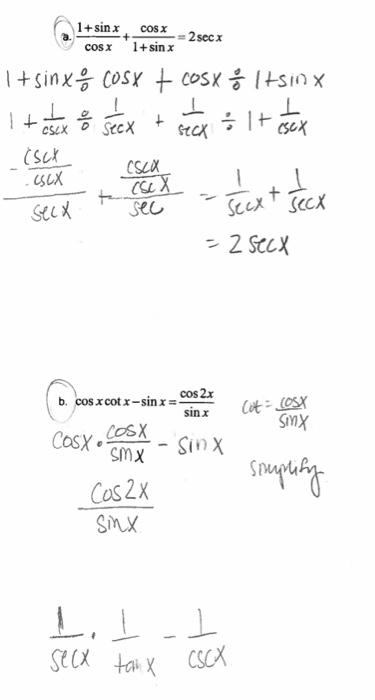 a. (1 + sin x)/(cos x) + (cos x)/(1 + sin x) = 2 sec x
1 + sin x ÷ cos x + cos x ÷ 1 + sin x
1 + 1/(csc x) ÷ 1/(sec x) + 1/(sec x) ÷ 1 + 1/(csc x)
- ((csc x)/(csc x))/(sec x) + ((csc x)/(csc x))/(sec) = 1/(sec x) + 1/(sec x)
= 2 sec x
b. cos x cot x – sin x = (cos 2x)/(sin x)
cot = (cos x)/(sin x)
cos x · (cos x)/(sin x) - sin x
simplify
(cos 2x)/(sin x)
1/(sec x) · 1/(tan x) - 1/(csc x)